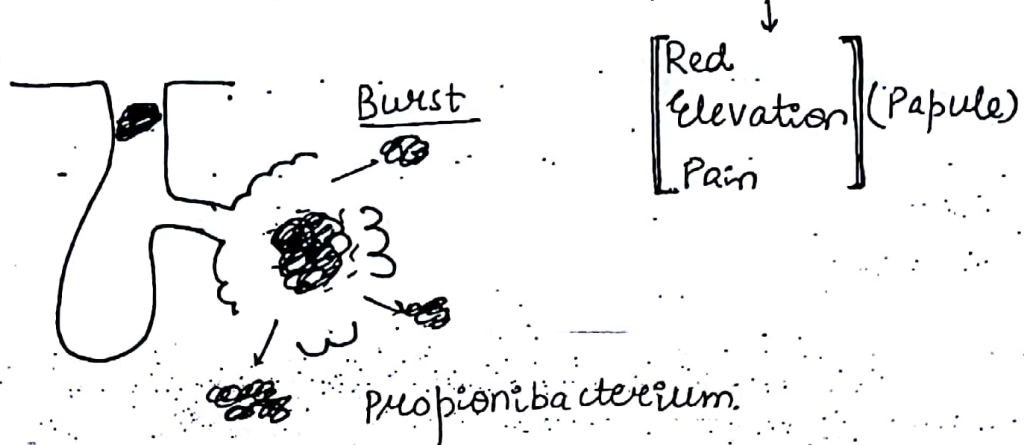 Burst
Red
Elevation
Pain
(Papule)
Propionibacterium.